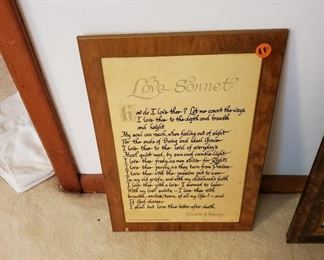 Love Sonnet
How do I love thee? Let me count the ways.
I love thee to the depth and breadth
and height
My soul can reach, when feeling out of sight
For the ends of Being and ideal Grace.
I love thee to the level of everyday's
Most quiet need, by sun and candle-light.
I love thee freely, as men strive for Right;
I love thee purely, as they turn from Praise.
I love thee with the passion put to use
in my old griefs, and with my childhood's faith
I love thee with a love I seemed to lose
With my lost saints, - I love thee with
breadth, smiles, tears, of all my life! - and
If God choose,
I shall but love thee better after death.